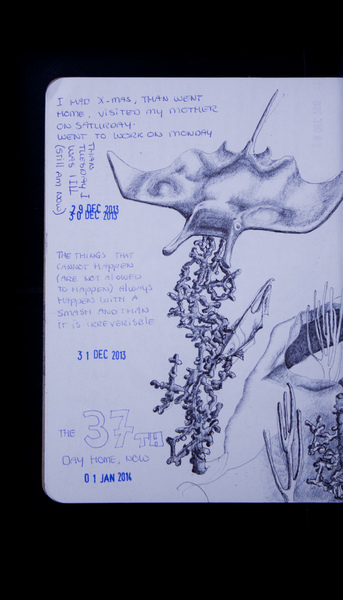 I HAD X-MAS, THAN WENT
HOME, VISITED MY MOTHER
ON SATURDAY.
WENT TO WORK ON MONDAY
THAN
TUESDAY I
WAS ILL
(STILL AM NOW)
29 DEC 2013
30 DEC 2013
THE THINGS THAT
CANNOT HAPPEN
(ARE NOT ALOWED
TO HAPPEN) ALWAYS
HAPPEN WITH A
SMASH AND THAN
IT IS IRREVERISBLE
31 DEC 2013
THE 37TH
DAY HOME, NOW
01 JAN 2014